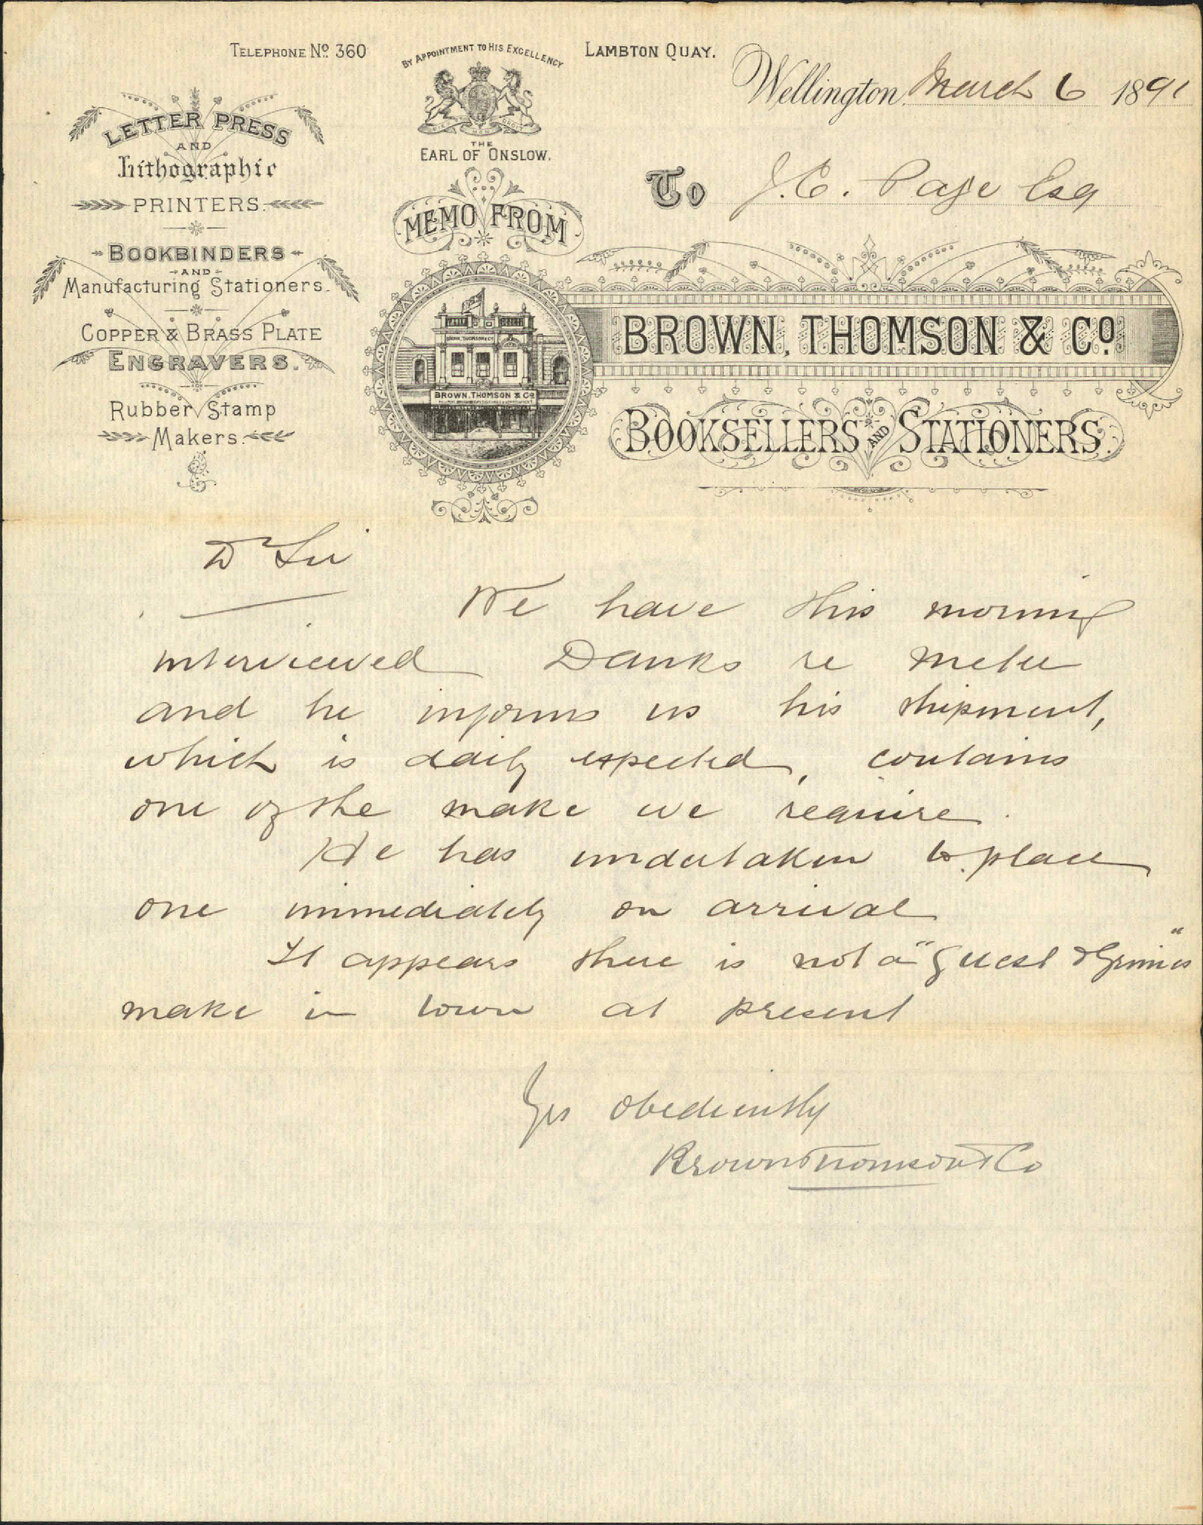 TELEPHONE No. 360
LETTER PRESS
AND
Lithographic
PRINTERS.
BOOKBINDERS
AND
Manufacturing Stationers.
COPPER & BRASS PLATE
ENGRAVERS.
Rubber Stamp
Makers.
BY APPOINTMENT TO HIS EXCELLENCY
THE
EARL OF ONSLOW.
MEMO FROM
BROWN, THOMSON & Co
LAMBTON QUAY.
Wellington March 6 1891
To J. C. Page Esq
BROWN, THOMSON & Co.
BOOKSELLERS AND STATIONERS.
Dr Sir
We have this morning
interviewed Danks re meter
and he informs us his shipment,
which is daily expected, contains
one of the make we require.
He has undertaken to place
one immediately on arrival
It appears there is not a "Guest & Grimes"
make in town at present
Yrs obediently
Brown Thomson & Co